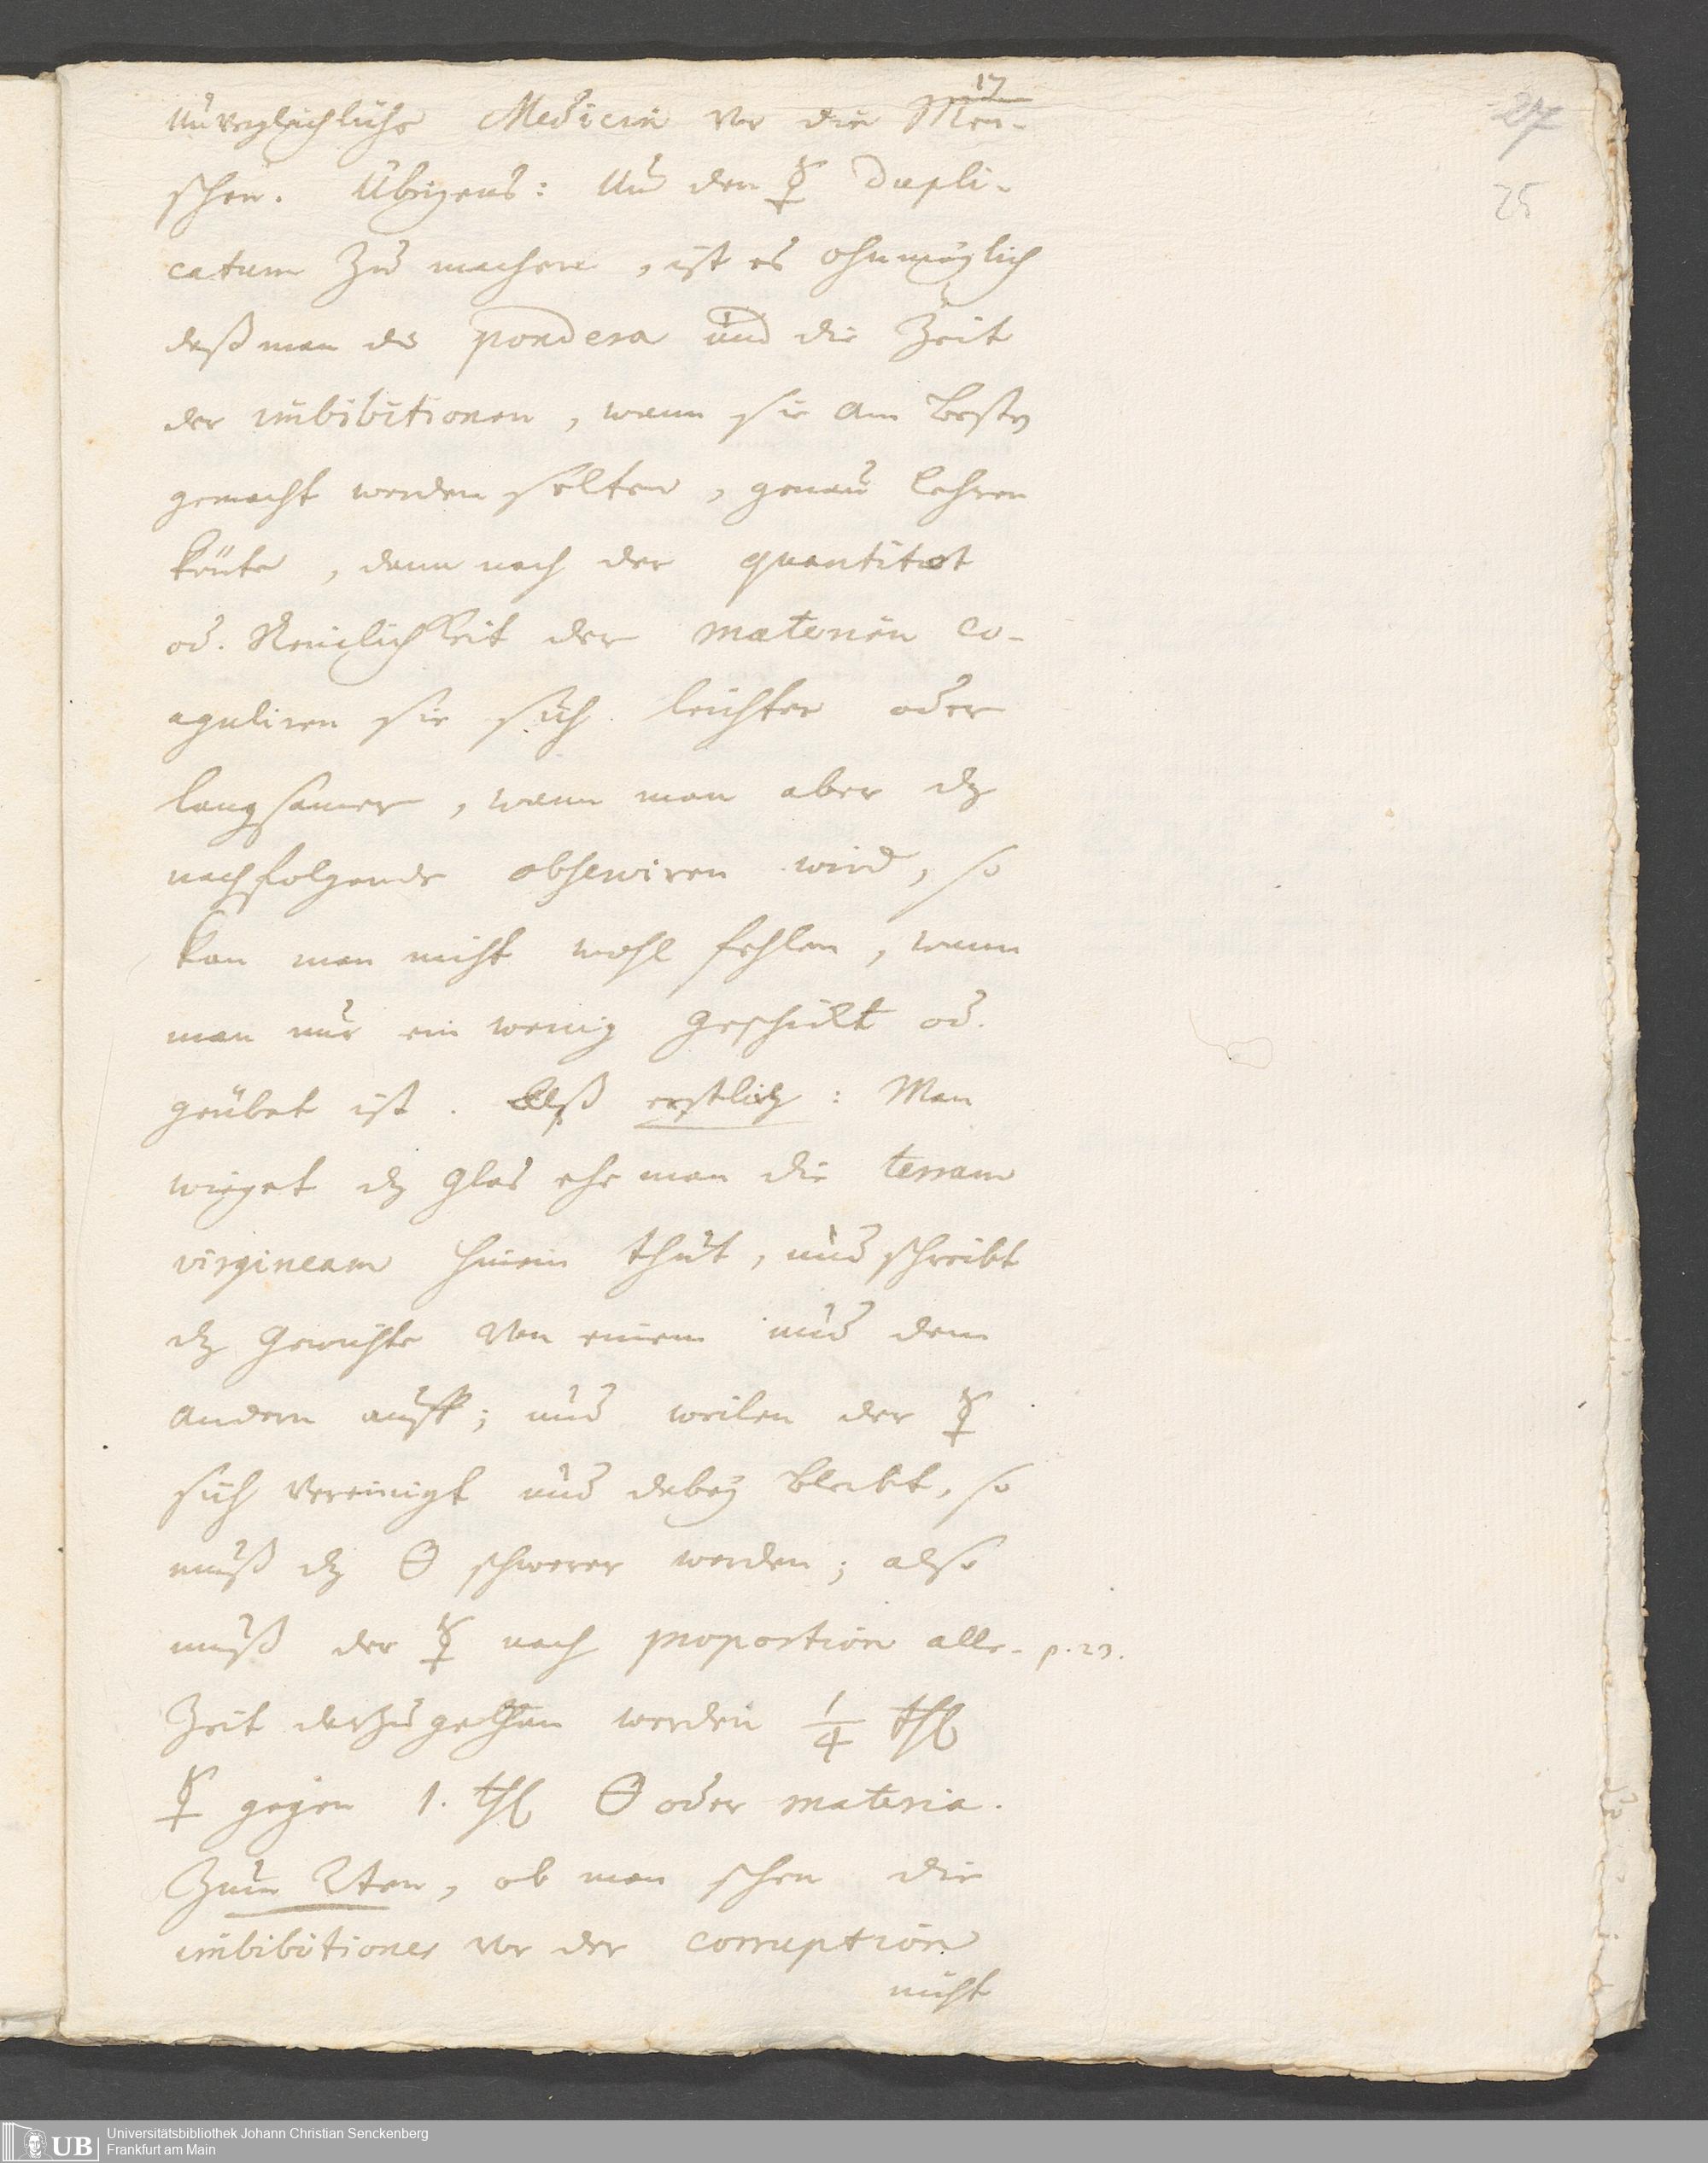 17
27
25
Unvergleichliche Medicin vor die Men-
schen. Übrigens: Um den ☿ dupli-
catum zu machen, ist es ohnmöglich
daß man die pondera und die Zeit
der imbibitionen, wann sie am besten
gemacht werden sollten, genau lehren
könte, dann nach der quantitæt
od. Reinlichkeit der materien co-
aguliren sie sich leichter oder
langsamer, wann man aber dz
nachfolgende observiren wird, so
kan man nicht wohl fehlen, wann
man nur ein wenig geschickt od.
geübet ist. Alß erstlich: Man
wieget dz Glas ehe man die terram
virgineam hinein thut, und schreibt
dz Gewichte von einem und dem
andern auff; und weilen der ☿
sich vereinigt und dabey bleibt, so
muß dz 🜔 schwerer werden; also
muß der ☿ nach proportion alle- p. 23.
Zeit darzu gethan werden 1/4 thl
☿ gegen 1. thl 🜔 oder materia.
Zum 2ten, ob man schon die
imbibitiones vor der corruption
nicht
UB
Universitätsbibliothek Johann Christian Senckenberg
Frankfurt am Main